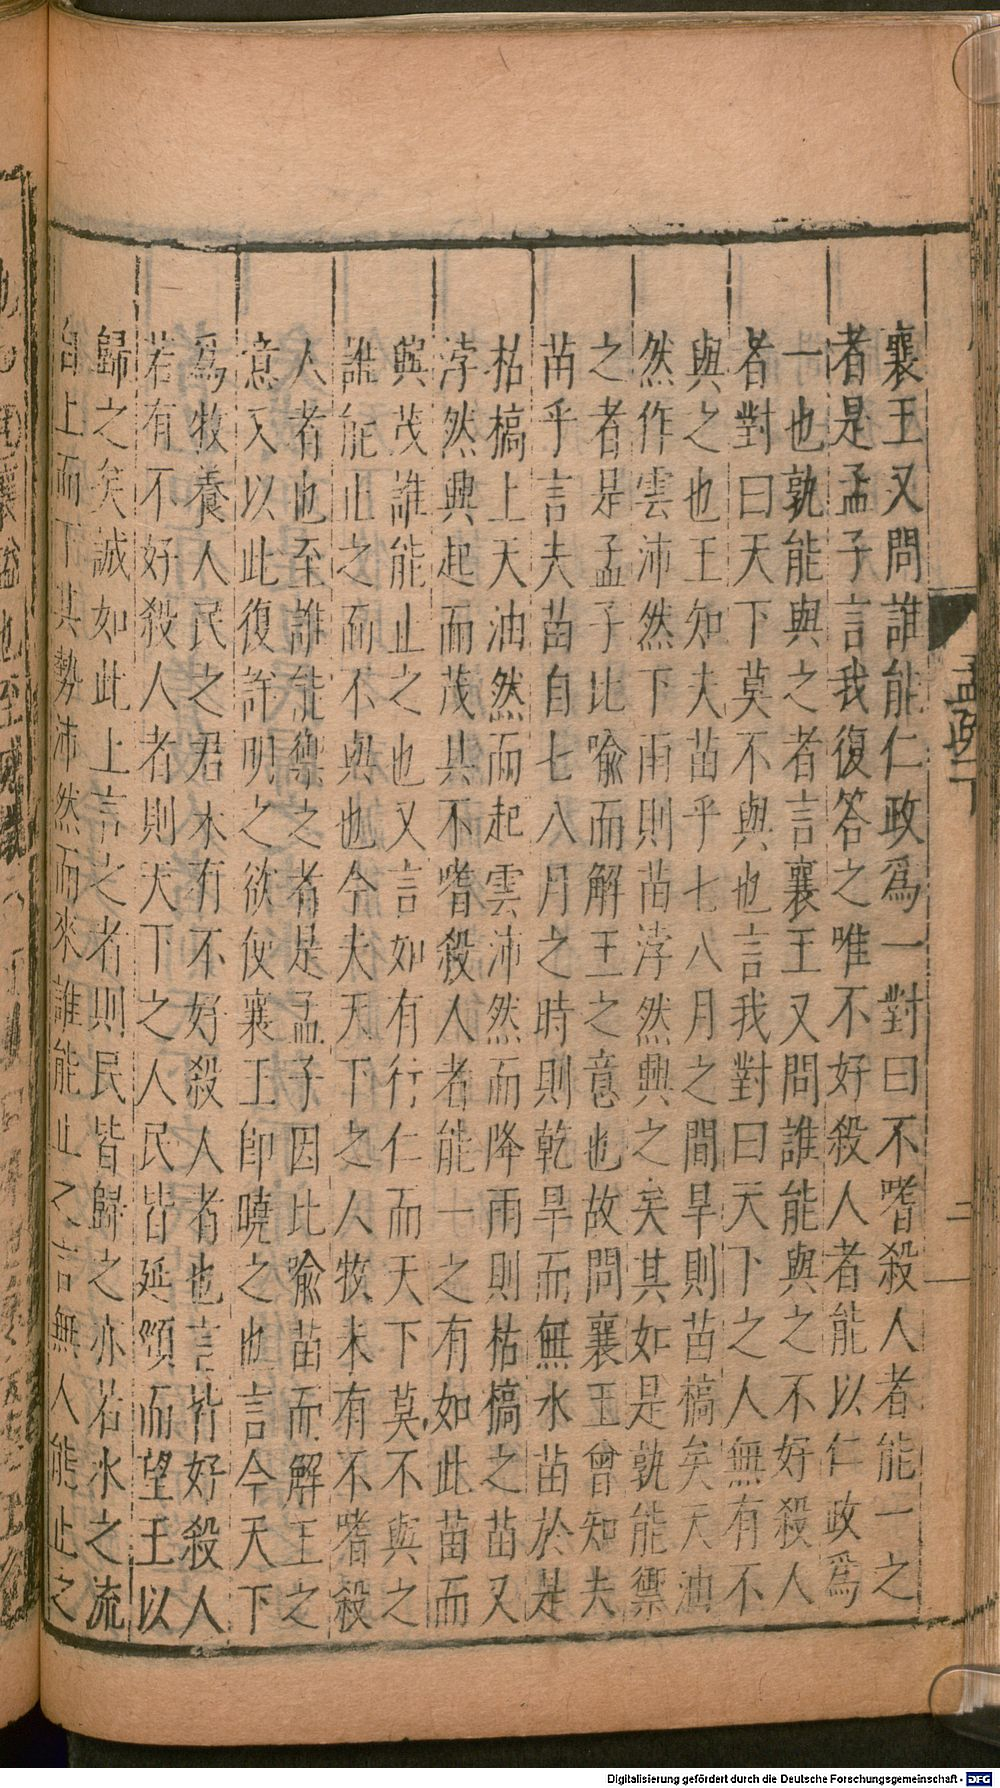 襄王又問誰能仁政爲一對曰不嗜殺人者能一之
者是孟子言我復答之唯不好殺人者能以仁政爲
一也孰能與之者言襄王又問誰能與之不好殺人
者對曰天下莫不與也言我對曰天下之人無有不
與之也王知夫苗乎七八月之間旱則苗槁矣天油
然作雲沛然下雨則苗浡然興之矣其如是孰能禦
之者是孟子比喻而解王之意也故問襄王曾知夫
苗乎言夫苗自七八月之時則乾旱而無水苗於是
枯槁上天油然而起雲沛然而降雨則枯槁之苗又
浡然興起而茂其不嗜殺人者能一之有如此苗而
興茂誰能止之也又言如有行仁而天下莫不與之
誰能止之而不與也今夫天下之人牧未有不嗜殺
人者也至誰能禦之者是孟子因比喻苗而解王之
意又以此復詳明之欲使襄王即曉之也言今天下
爲牧養人民之君未有不好殺人者也言皆好殺人
若有不好殺人者則天下之人民皆延頸而望王以
歸之矣誠如此上言之者則民皆歸之亦若水之流
自上而下其勢沛然而來誰能止之言無人能止之
二
Digitalisierung gefördert durch die Deutsche Forschungsgemeinschaft - DFG